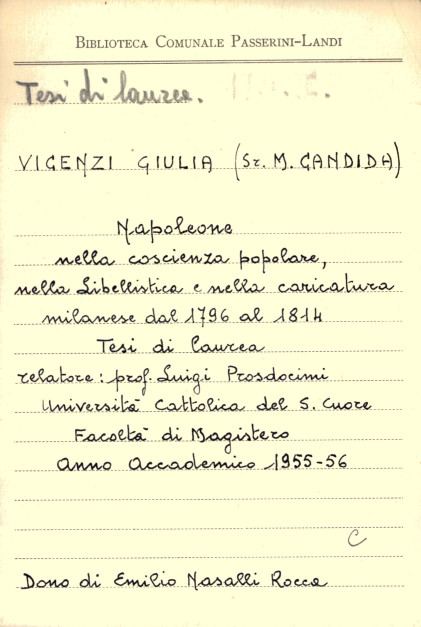 BIBLIOTECA COMUNALE PASSERINI-LANDI
Tesi di laurea.
VIGENZI GIULIA (Sr. M. CANDIDA)
Napoleone
nella coscienza popolare,
nella Libellistica e nella caricatura
milanese dal 1796 al 1814
Tesi di laurea
relatore: prof. Luigi Prosdocimi
Università Cattolica del S. Cuore
Facoltà di Magistero
Anno Accademico 1955-56
C
Dono di Emilio Nasalli Rocca